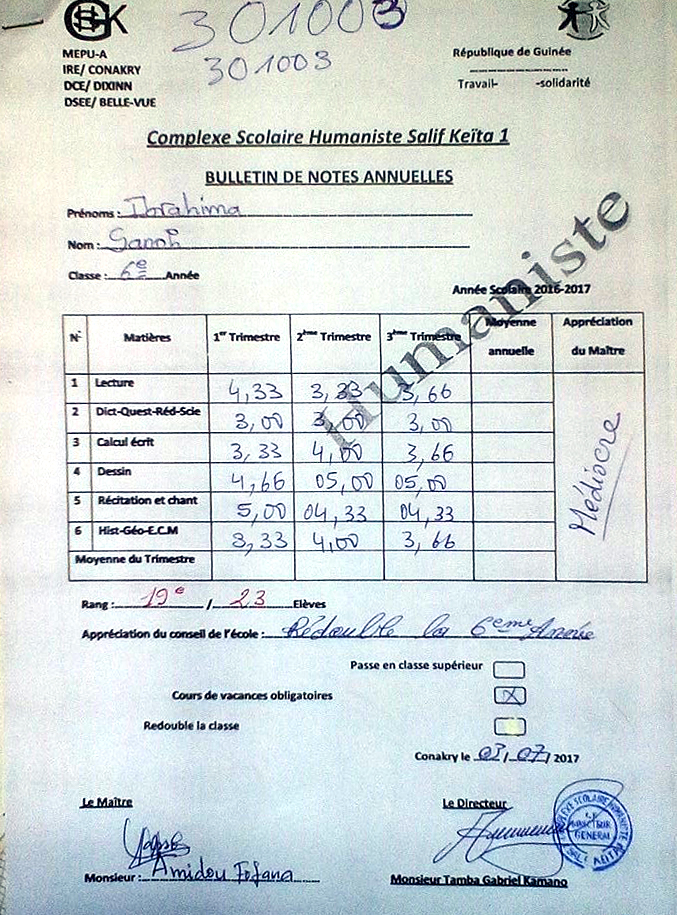 301003
301003
MEPU-A
IRE/ CONAKRY
DCE/ DIXINN
DSEE/ BELLE-VUE
République de Guinée
Travail- -solidarité
Complexe Scolaire Humaniste Salif Keïta 1
BULLETIN DE NOTES ANNUELLES
Prénoms : Ibrahima
Nom :
Classe : 6e Année
Humaniste
Année Scolaire 2016-2017
N° Matières 1er Trimestre 2ème Trimestre 3ème Trimestre Moyenne annuelle Appréciation du Maître
1 Lecture 4,33 3,33 3,66
2 Dict-Quest-Réd-Scie 3,00 3,00 3,00
3 Calcul écrit 3,33 4,00 3,66
4 Dessin 4,66 05,00 05,00
5 Récitation et chant 5,00 04,33 04,33
6 Hist-Géo-E.C.M 3,33 4,00 3,66
Médiocre
Moyenne du Trimestre
Rang : 19e / 23 Elèves
Appréciation du conseil de l'école : Rédouble la 6eme Année
Passe en classe supérieur
Cours de vacances obligatoires X
Redouble la classe
Conakry le 03/07/2017
Le Maître Le Directeur
Monsieur : Amidou Fofana
Monsieur Tamba Gabriel Kamano
COMPLEXE SCOLAIRE HUMANISTE
LE DIRECTEUR GENERAL
SALIF KEITA